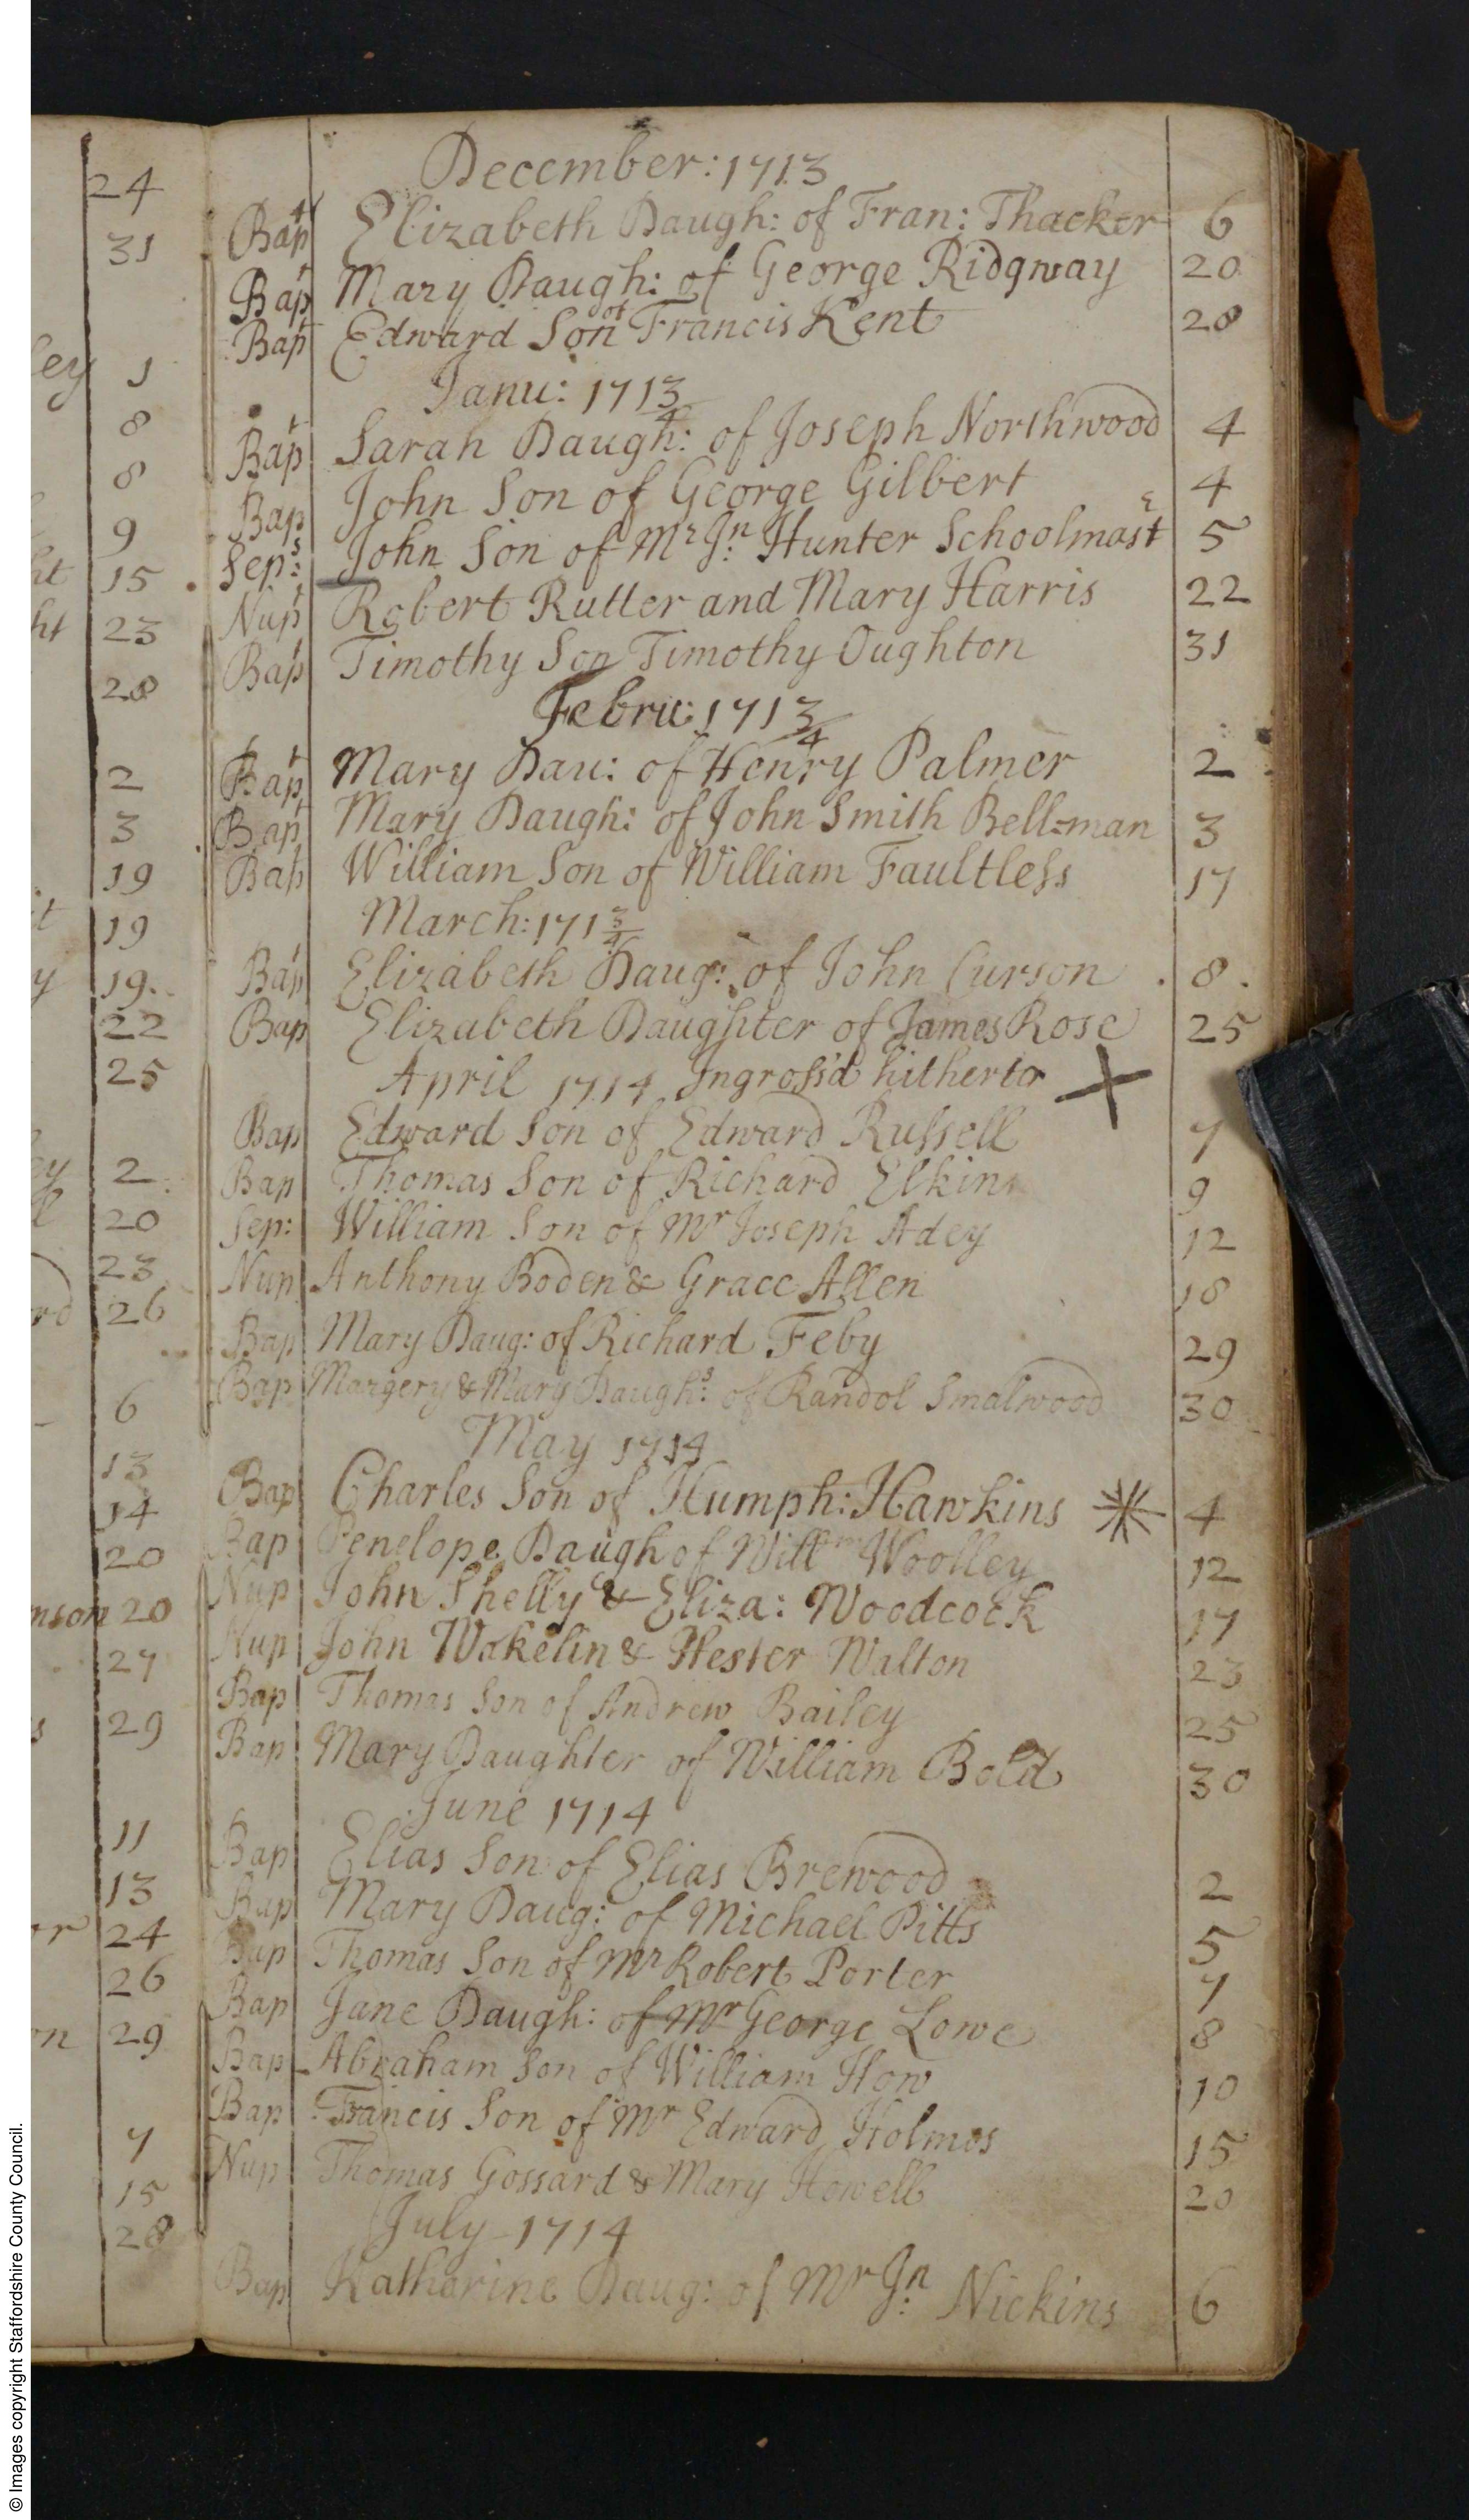 December: 1713
Bapt Elizabeth Daugh: of Fran: Thacker 6
Bapt Mary Daugh: of George Ridgway 20
Bapt Edward Son of Francis Kent 28
Janu: 1713/4
Bapt Sarah Daugh: of Joseph Northwood 4
Bap John Son of George Gilbert 4
Seps: John Son of Mr Jn: Hunter Schoolmastε 5
Nupt Robert Rutter and Mary Harris 22
Bapt Timothy Son Timothy Oughton 31
Febru: 1713/4
Bapt Mary Dau: of Henry Palmer 2
Bapt Mary Daugh: of John Smith Bell=man 3
Bap William Son of William Faultless 17
March: 1713/4
Bapt Elizabeth Daug: of John Curson 8
Bap Elizabeth Daughter of James Rose 25
April 1714 Ingross'd hitherto
Bap Edward Son of Edward Russell 7
Bap Thomas Son of Richard Elkin 9
Sep: William Son of Mr Joseph Adey 12
Nup Anthony Boden & Grace Allen 18
Bap Mary Daug: of Richard Feby 29
Bap Margery & Mary Daughs: of Randol Smalwood 30
May 1714
Bap Charles Son of Humph: Hawkins 4
Bap Penelope Daugh of Willm Woolley 12
Nup John Shelly & Eliza: Woodcock 17
Nup John Wakelin & Hester Walton 23
Bap Thomas Son of Andrew Bailey 25
Bap Mary Daughter of William Bold 30
June 1714
Bap Elias Son of Elias Brewood 2
Bap Mary Daug: of Michael Pitts 5
Bap Thomas Son of Mr Robert Porter 7
Bap Jane Daugh: of Mr George Lowe 8
Bap Abraham Son of William How 10
Bap Francis Son of Mr Edward Holmes 15
Nup Thomas Gossard & Mary Howell 20
July 1714
Bap Katherine Daug: of Mr Jn: Nickins 6
24
31
ley 1
8
8
9
ht 15
ht 23
28
2
3
19
19
y 19
22
25
ey 2
20
23
rd 26
6
13
14
20
nson 20
27
s 29
11
13
or 24
26
on 29
7
15
28
© Images copyright Staffordshire County Council.